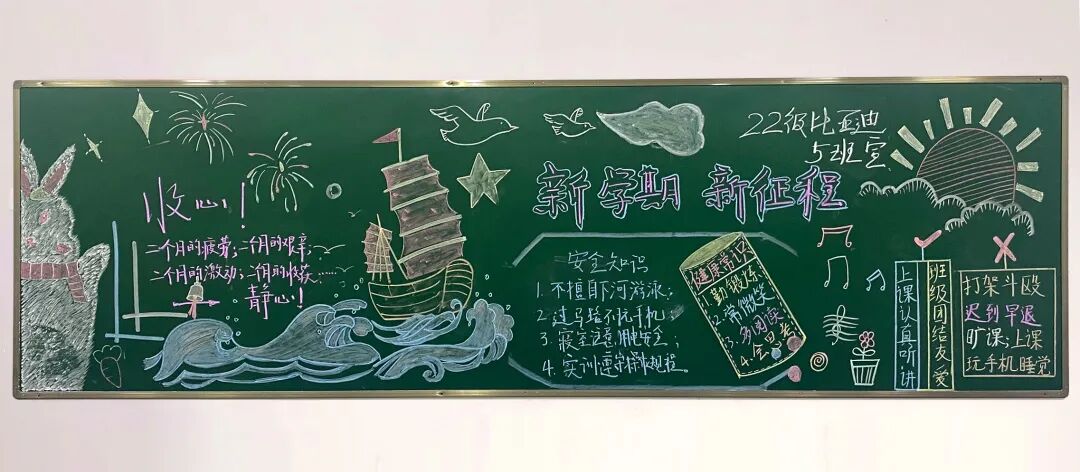 收心！
二个月的疲劳；二个月的艰辛；
二个月的激动；二个月的收获……
静心！
22级比亚迪
5班宣
新学期 新征程
安全知识
1. 不擅自下河游泳；
2. 过马路不玩手机；
3. 寝室注意用电安全；
4. 实训遵守操作规程。
健康常识
1. 勤锻炼
2. 常微笑
3. 多阅读
4. 会思考
上课认真听讲
班级团结友爱
打架斗殴
迟到早退
旷课；上课
玩手机睡觉